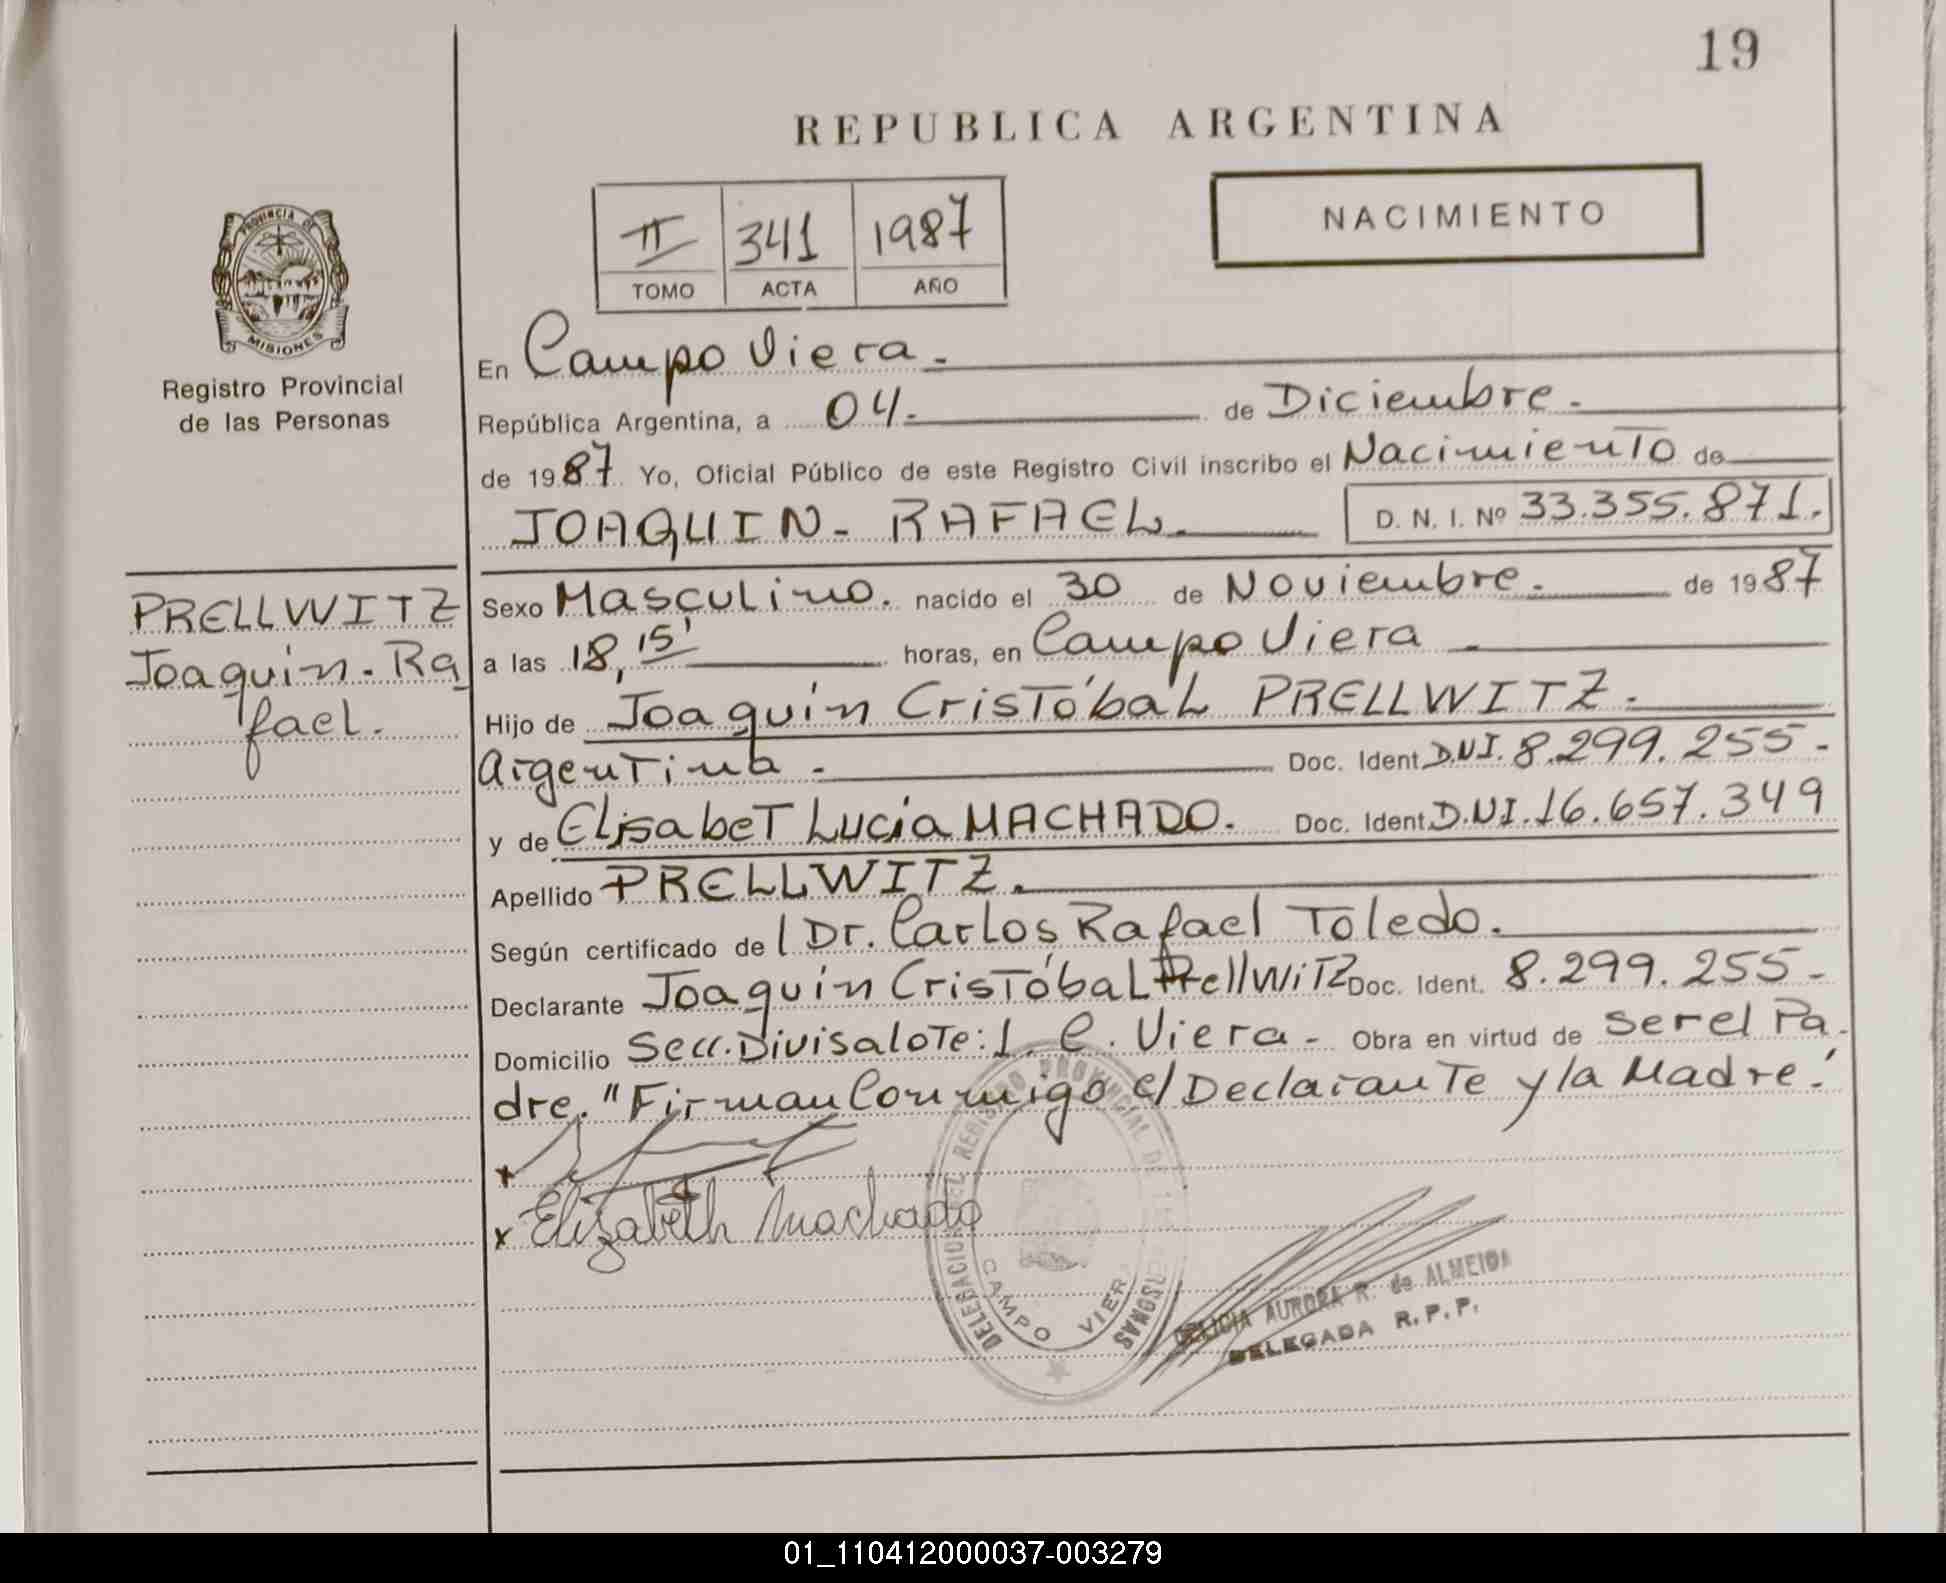 19
REPUBLICA ARGENTINA
NACIMIENTO
II 341 1987
TOMO ACTA AÑO
PROVINCIA DE
MISIONES
Registro Provincial
de las Personas
En Campo Viera.
República Argentina, a 04. de Diciembre.
de 1987 Yo, Oficial Público de este Registro Civil inscribo el Nacimiento de
JOAQUIN- RAFAEL. D. N. I. Nº 33.355.871.
PRELLWITZ
Joaquin. Ra
fael.
Sexo Masculino. nacido el 30 de Noviembre. de 1987
a las 18,15' horas, en Campo Viera
Hijo de Joaquín Cristóbal PRELLWITZ.
Argentina. Doc. Ident D.NI. 8.299.255-
y de Elisabet Lucia MACHADO. Doc. Ident D.NI.16.657.349
Apellido PRELLWITZ.
Según certificado de l Dr. Carlos Rafael Toledo.
Declarante Joaquín Cristóbal PrellWiTZ Doc. Ident. 8.299.255-
Domicilio Secc.Divisalote:1. C. Viera- Obra en virtud de ser el Pa
dre. "Firman Conmigo el Declarante y la Madre.'
x
x Elizabeth Machado
DELEGACION DEL REGISTRO PROVINCIAL DE LAS PERSONAS
CAMPO VIERA
DELICIA AURORA R. de ALMEIDA
DELEGADA R.P.P.
01_110412000037-003279